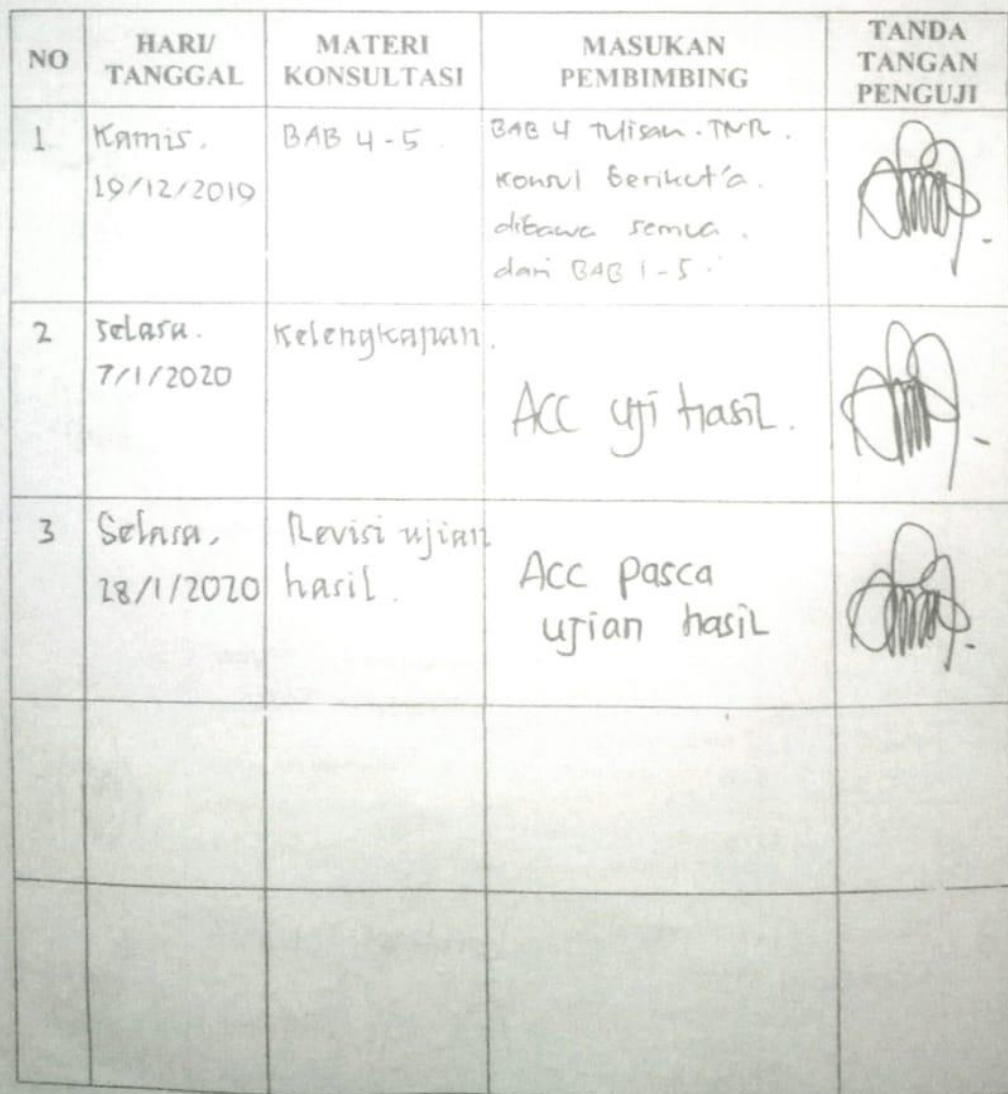 NO
HARI/
TANGGAL
MATERI
KONSULTASI
MASUKAN
PEMBIMBING
TANDA
TANGAN
PENGUJI
1
Kamis.
19/12/2019
BAB 4-5
BAB 4 tulisan. TNR.
Konsul berikut'a.
dibawa semua.
dari BAB 1-5.
2
Selasa.
7/1/2020
Kelengkapan.
Acc uji hasil.
3
Selasa,
28/1/2020
Revisi ujian
hasil.
Acc pasca
ujian hasil